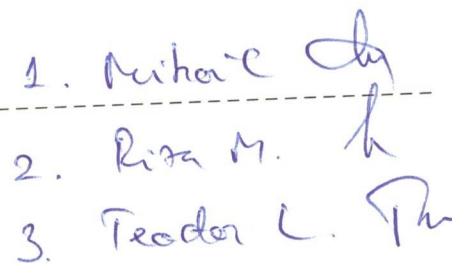 1. Mihail
2. Riza M.
3. Teodor L.